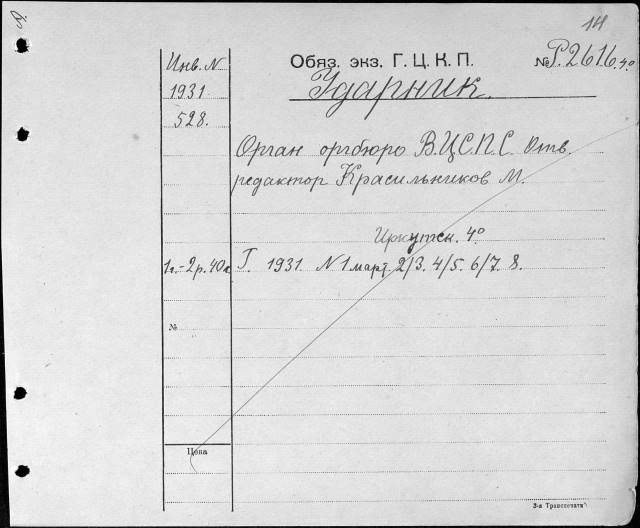 14
Обяз. экз. Г. Ц. К. П. № P.2616.4°
Ударник.
Инв. N
1931
528.
Орган оргбюро В.Ц.С.П.С. Отв.
редактор Красильников М.
Иркутск. 4°
1г.-2р.40к Г. 1931. N 1 март. 2/3. 4/5. 6/7. 8.
№
Цена
3-я Транспечати